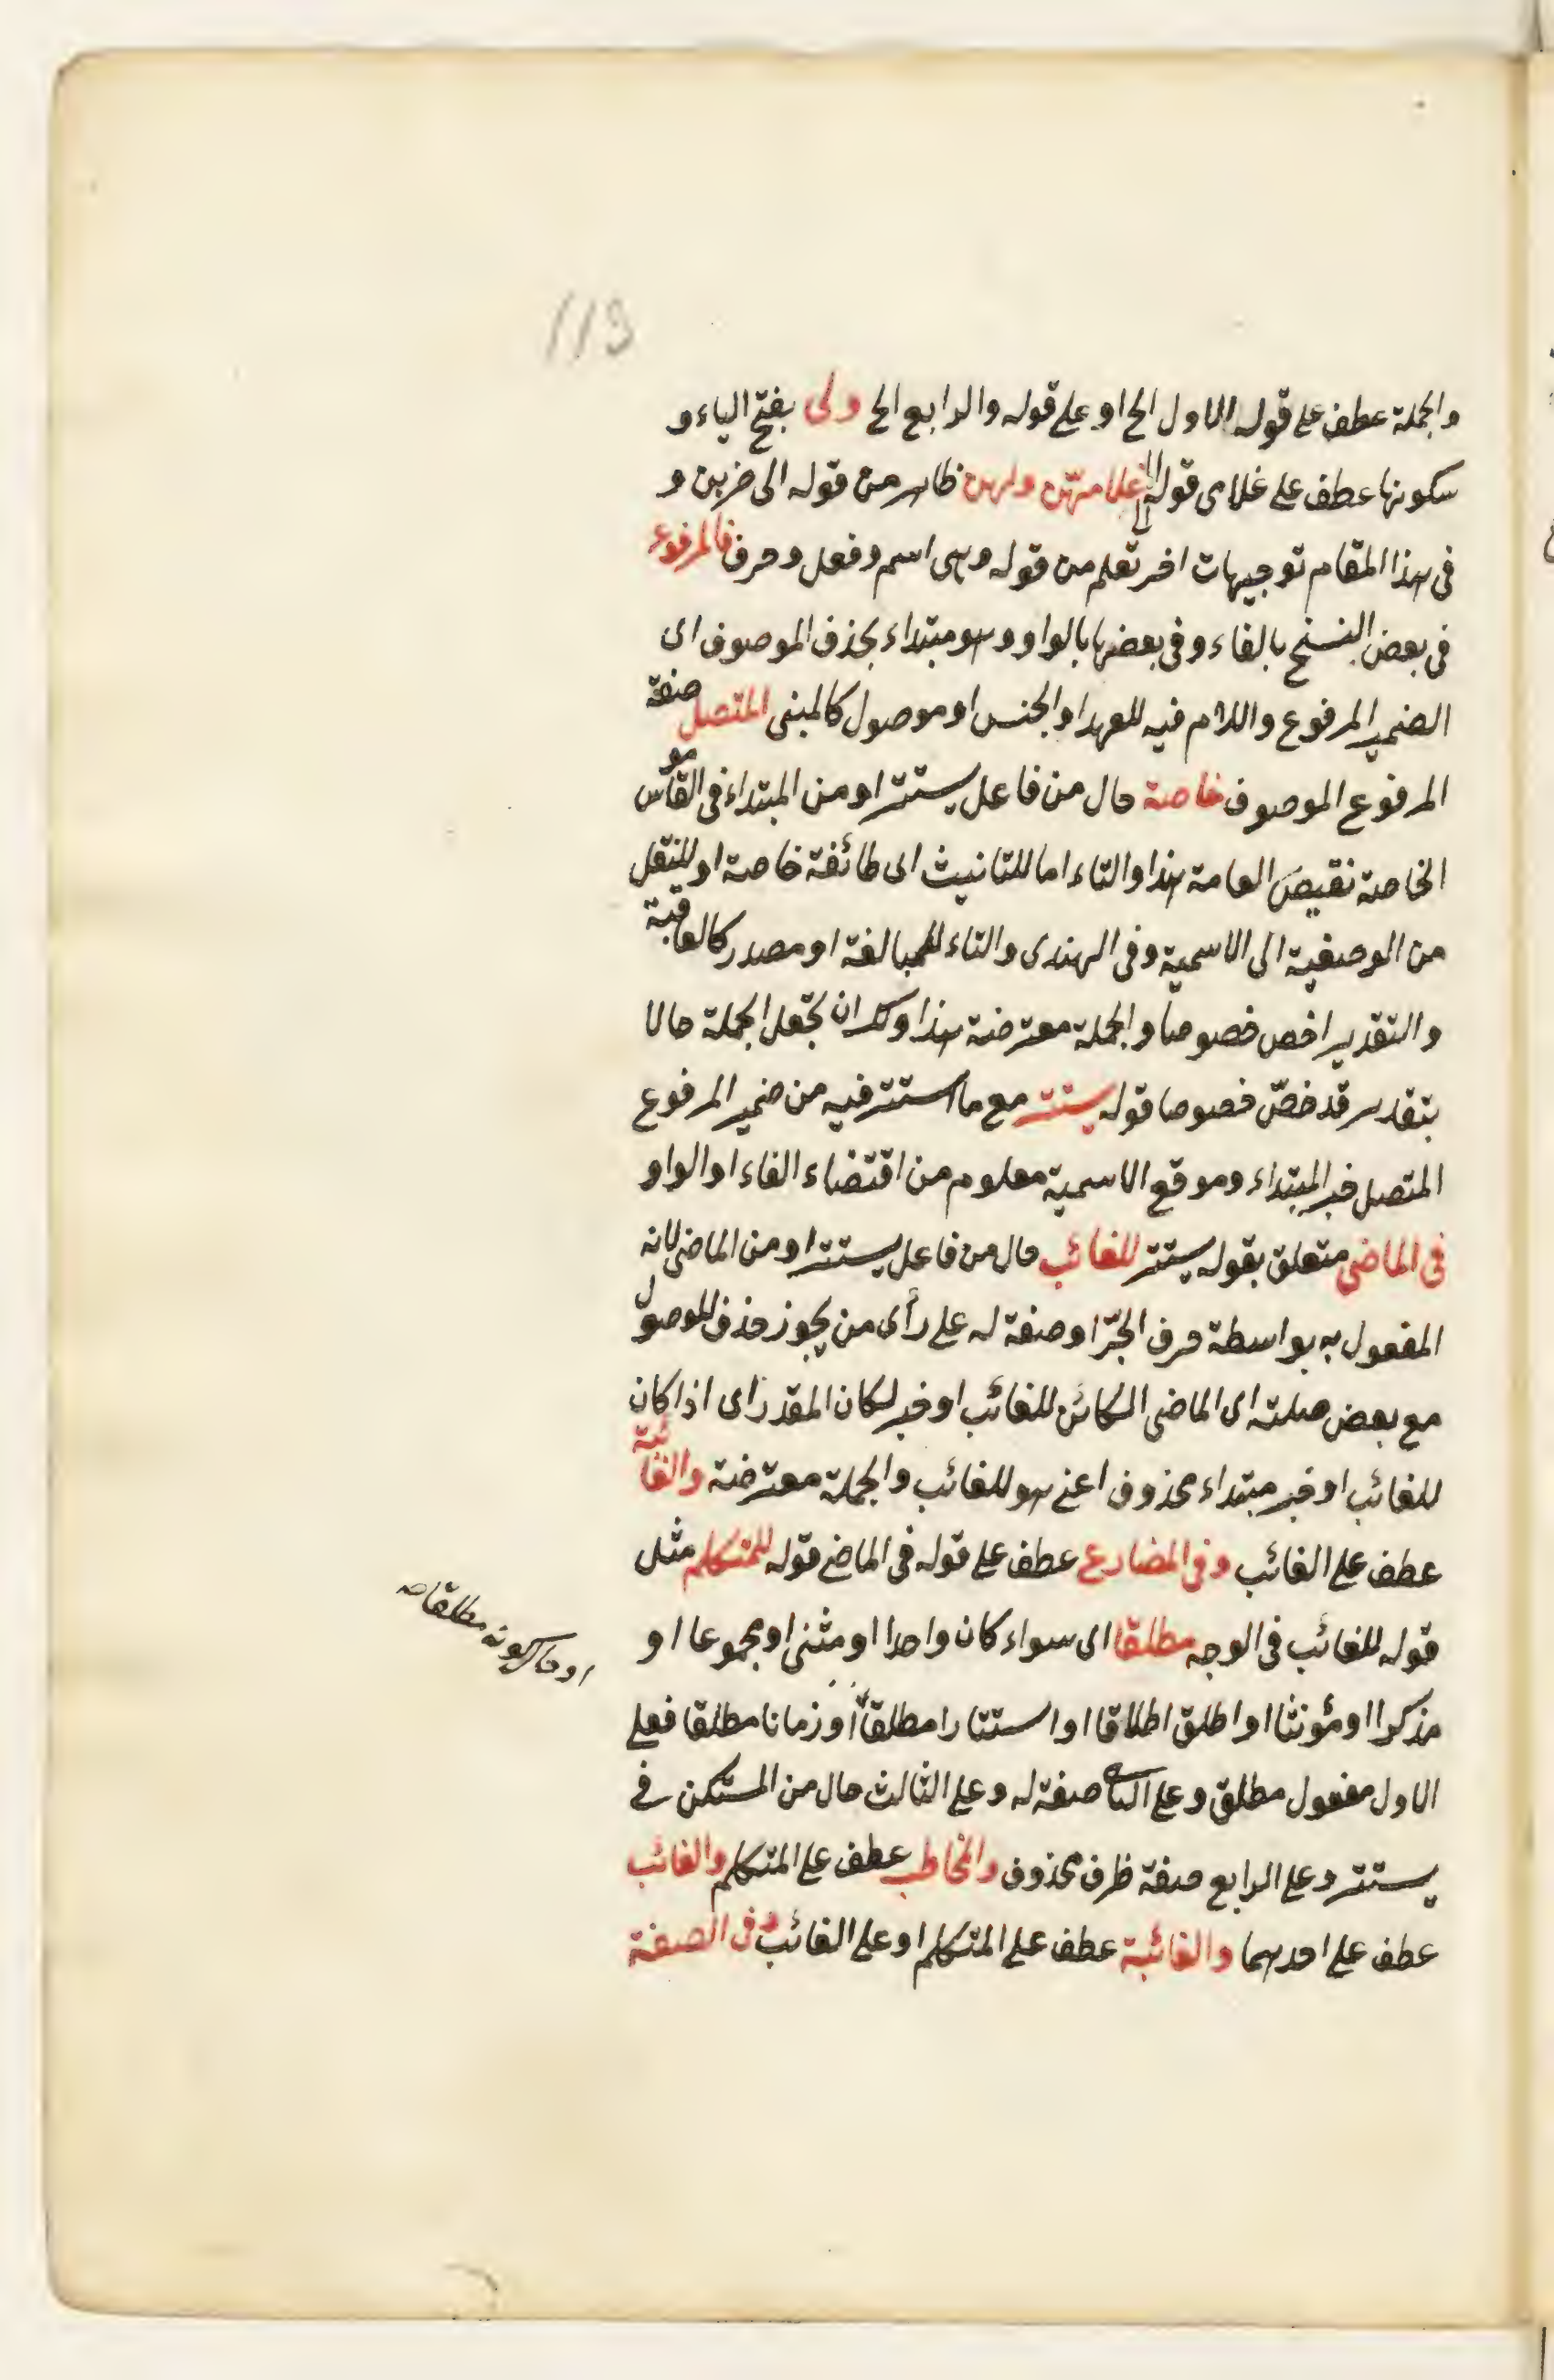 113
والجملة عطف على قوله الاول الخ او على قوله والرابع الخ ولى بفتح الياء و
سكونها عطف على غلامى قوله الى غلامهن ولهن ظاهر من قوله الى ضربن و
فى هذا المقام توجيهات اخر تعلم من قوله وهى اسم وفعل وحرف فالمرفوع
فى بعض النسخ بالفاء وفى بعضها بالواو وهو مبتداء بحذف الموصوف اى
الضمير المرفوع واللام فيه للعهد او الجنس او موصول كالمبنى المتصل صفة
المرفوع الموصوف خاصة حال من فاعل يستتر او من المبتداء فى القاموس
الخاصة نقيض العامة هذا والتاء اما للتانيث اى طائفة خاصة او للنقل
من الوصفية الى الاسمية وفى الهندى والتاء للمبالغة او مصدر كالعاقبة
والتقدير اخص خصوصا والجملة معترضة هذا ولك ان تجعل الجملة حالا
بتقدير قد خصّ خصوصا قوله يستتر مع ما استتر فيه من ضمير المرفوع
المتصل خبر المبتداء وموقع الاسمية معلوم من اقتضاء الفاء او الواو
فى الماضى متعلق بقوله يستتر للغائب حال من فاعل يستتر او من الماضى لانه
المفعول به بواسطة حرف الجرّ او صفة له على رأى من يجوز حذف الموصول
مع بعض صلته اى الماضى الكائن للغائب او خبر لكان المقدر اى اذا كان
للغائب او خبر مبتداء محذوف اعنى هو للغائب والجملة معترضة والغائبة
عطف على الغائب وفى المضارع عطف على قوله فى الماضى قوله للمتكلم مثل
قوله للغائب فى الوجه مطلقا اى سواء كان واحدا او مثنى او مجموعا او
مذكرا او مؤنثا او اطلق اطلاقا او استتارا مطلقا او زمانا مطلقا فعلى
الاول مفعول مطلق وعلى الثانى صفة له وعلى الثالث حال من المستكن فى
يستتر وعلى الرابع صفة ظرف محذوف والمخاطب عطف على المتكلم والغائب
عطف على احدهما والغائبة عطف على المتكلم او على الغائب وفى الصفة
او حال كونه مطلقا صح